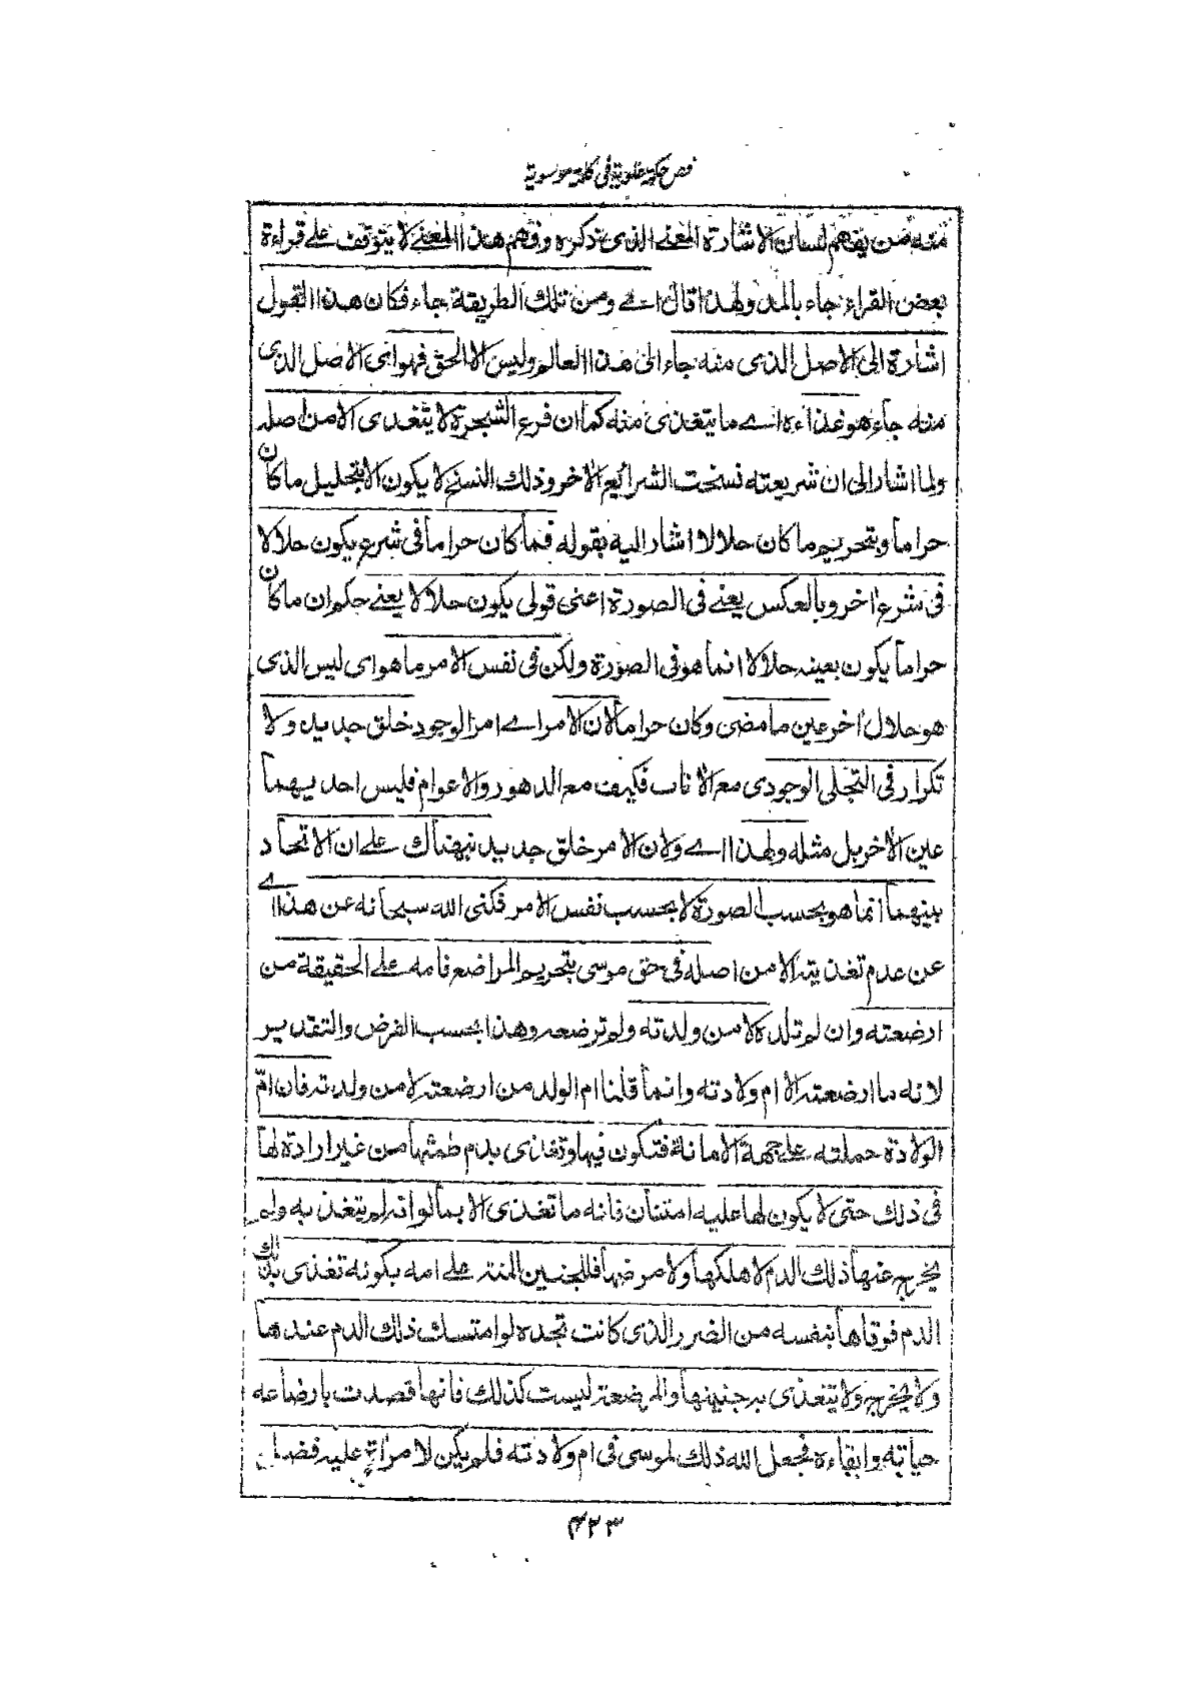 فص حكمة علوية في كلمة موسوية
منه من يفهم لسان الاشارة المعنى الذى نذكره وفهم هذا المعنى لا يتوقف على قراءة
بعض القراء جاء بالمد ولهذا قال اى ومن تلك الطريقة جاء فكان هذا القول
اشارة الى الاصل الذى منه جاء الى هذا العالم وليس الا الحق فهو اى الاصل الذى
منه جاء هو غذاءه اى ما يتغذى منه كما ان فرع الشجرة لا يتغذى الا من اصله
ولما اشار الى ان شريعته نسخت الشرائع الاخر وذلك النسخ لا يكون الا بتحليل ما كان
حراما وبتحريم ما كان حلالا اشار اليه بقوله فما كان حراما فى شرع يكون حلالا
فى شرع اخر وبالعكس يعنى فى الصورة اعنى قولى يكون حلالا يعنى حكم ان ما كان
حراما يكون بعينه حلالا انما هو فى الصورة ولكن فى نفس الامر ما هو اى ليس الذى
هو حلال اخر عين ما مضى وكان حراما لان الامر اى امر الوجود خلق جديد ولا
تكرار فى التجلى الوجودى مع الانات فكيف مع الدهور والاعوام فليس احديهما
عين الاخر بل مثله ولهذا اى ولان الامر خلق جديد نبهناك على ان الاتحاد
بينهما انما هو بحسب الصورة لا بحسب نفس الامر فكنى الله سبحانه عن هذا اى
عن عدم تغذيته الا من اصله فى حق موسى بتحريم المراضع فامه على الحقيقة من
ارضعته وان لم تلده لا من ولدته ولم ترضعه وهذا بحسب الفرض والتقدير
لانه ما ارضعته الا ام ولادته وانما قلنا ام الولد من ارضعته لا من ولدته فان ام
الولادة حملته على جهة الامانة فتكون فيها وتغذى بدم طمثها من غير ارادة لها
فى ذلك حتى لا يكون لها عليه امتنان فانه ما تغذى الا بما لو انه لم يتغذ به ولم
يخرج عنها ذلك الدم لاهلكها ولا مرضها فللجنين المنة على امه بكونه تغذى بذلك
الدم فوقاها بنفسه من الضرر الذى كانت تجده لو امتسك ذلك الدم عندها
ولا يخرج ولا يتغذى به جنينها والمرضعة ليست كذلك فانها قصدت بارضاعه
حياته وابقاءه فجعل الله ذلك لموسى فى ام ولادته فلم يكن لامراة عليه فضل
۴۲۳